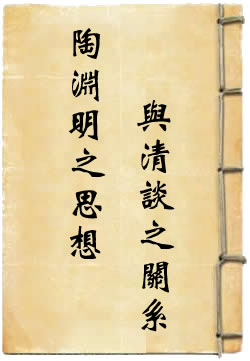 陶淵明之思想
與清談之關系